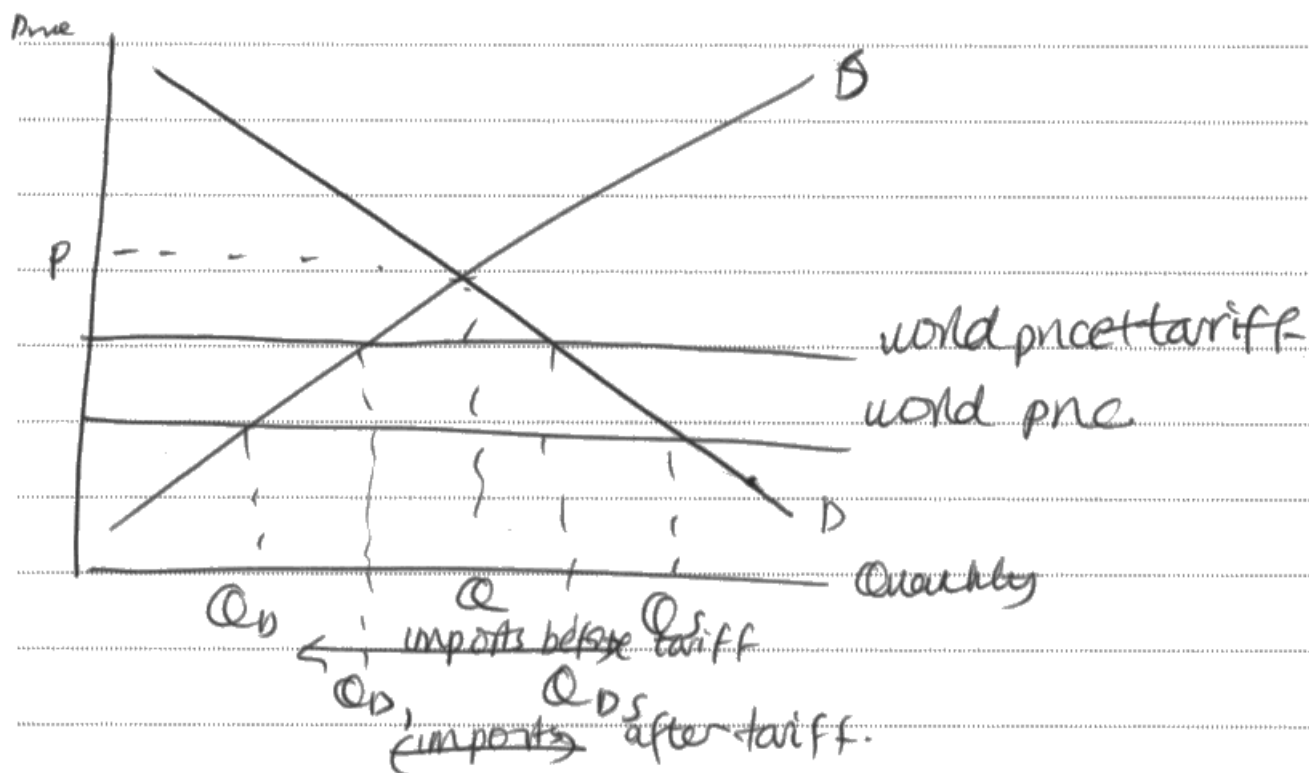 Price
S
P
world price+tariff
world price
D
Quantity
QD Q QS
imports before tariff
QD, QDS
imports after tariff.